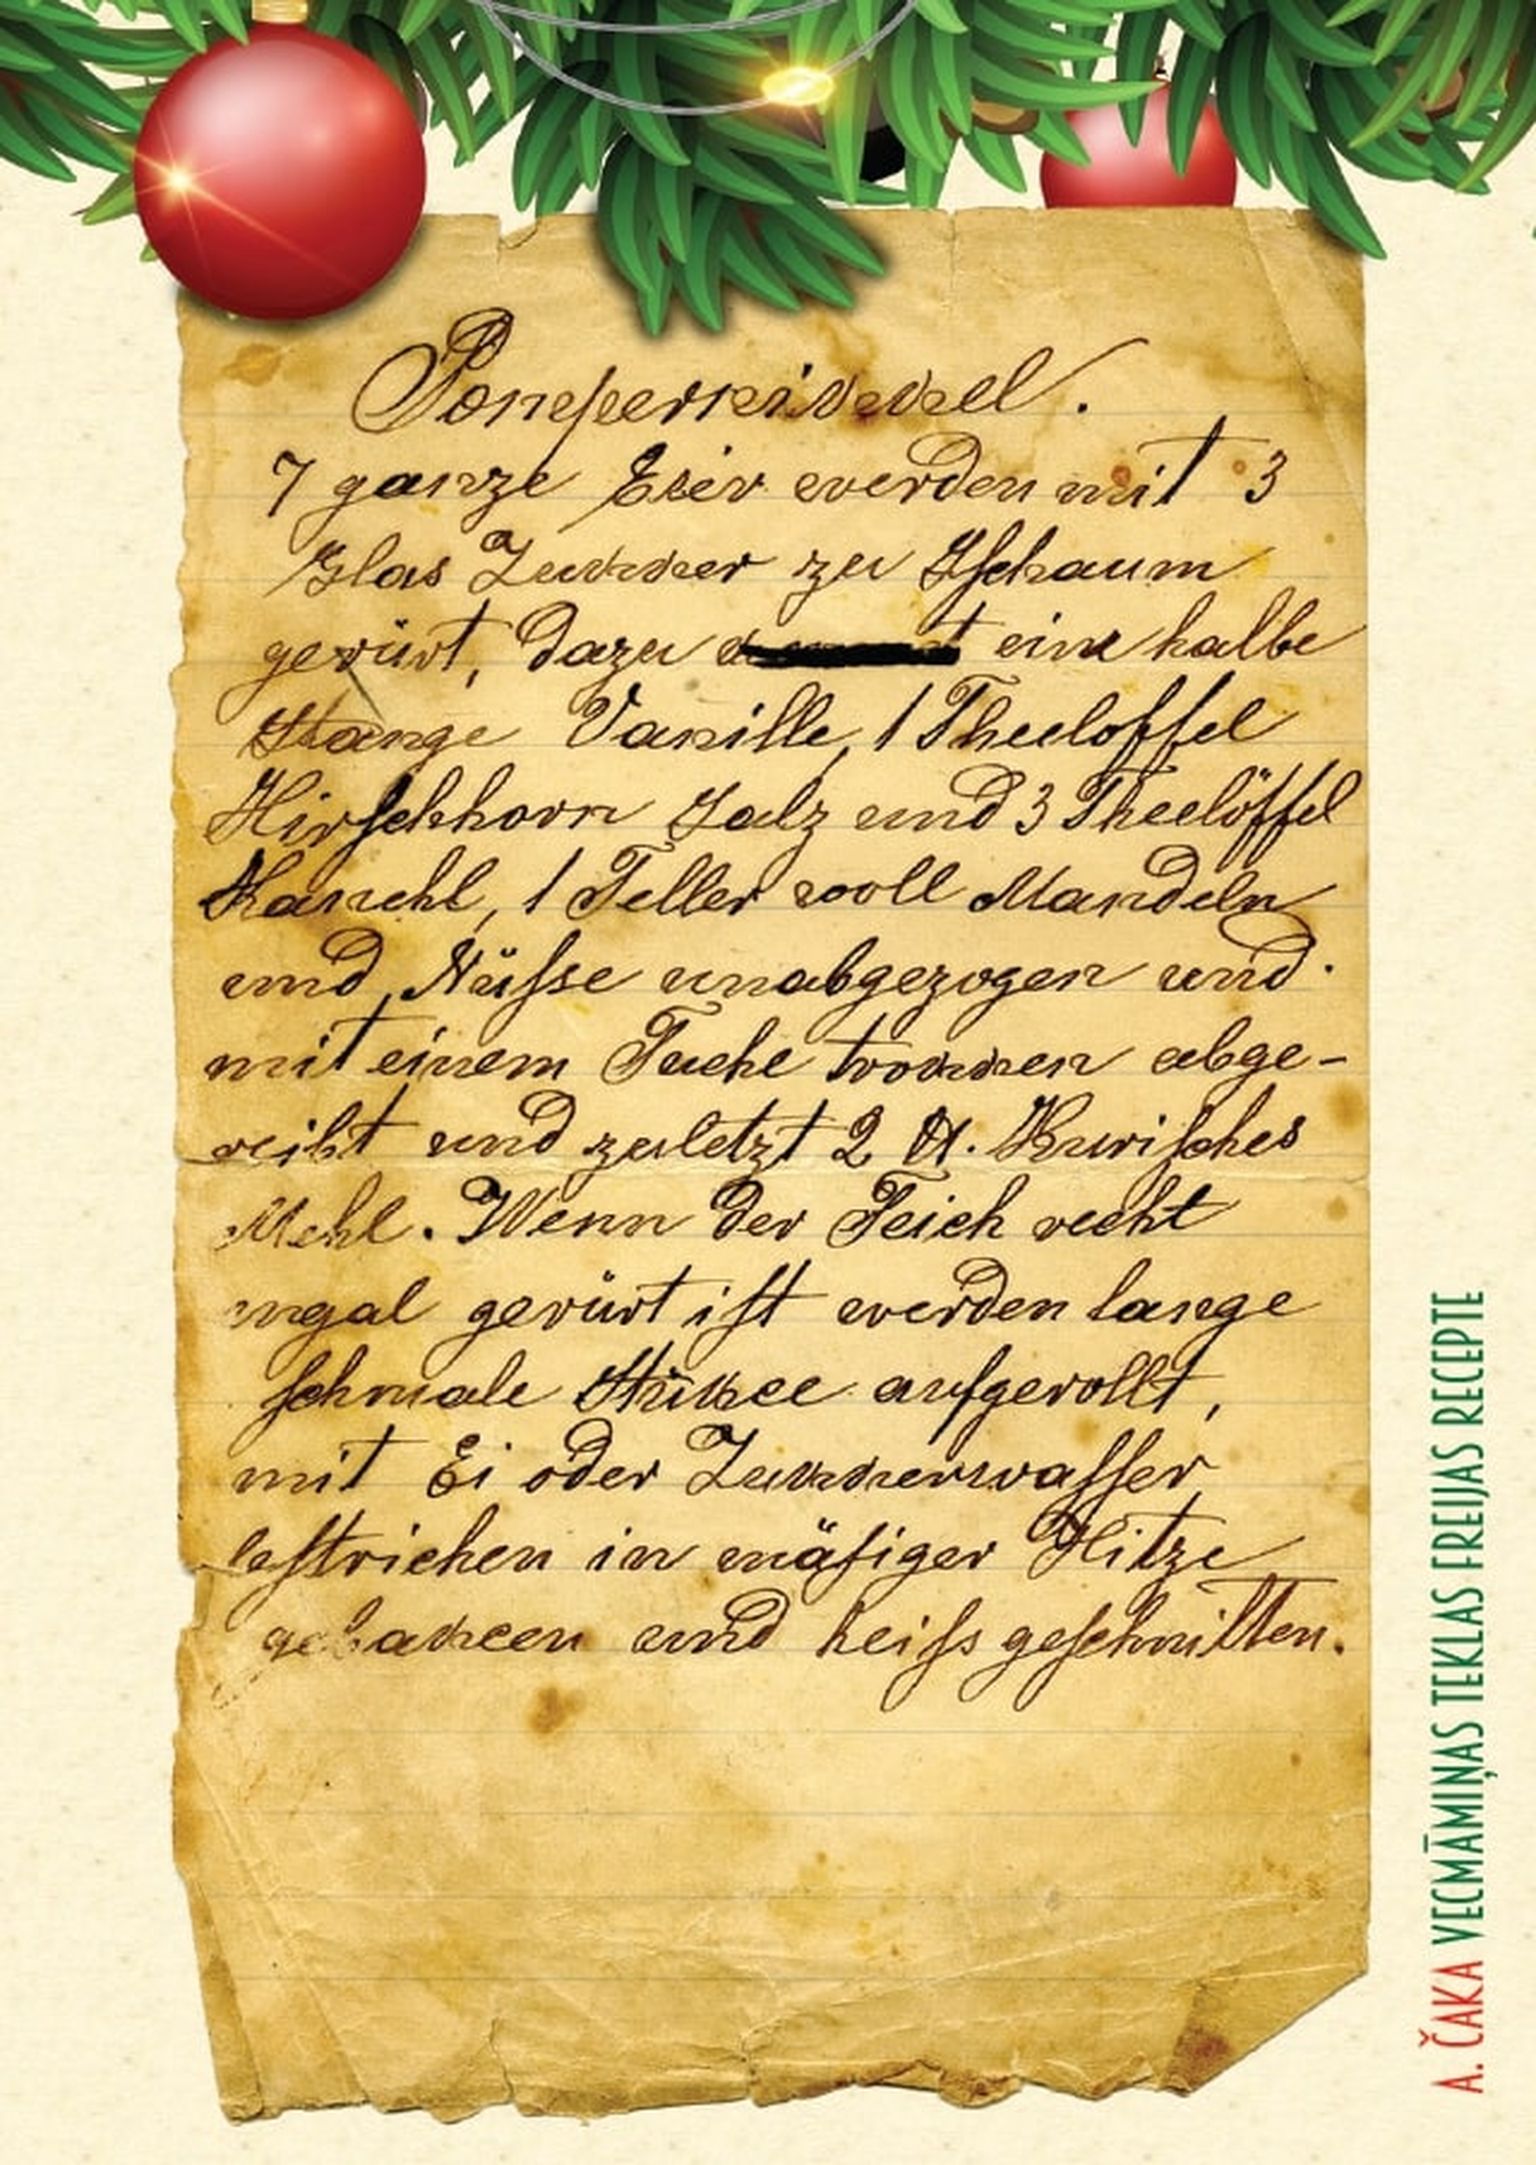 Pompernikkel.
7 ganze Eier werden mit 3
Glas Zukker zu Schaum
gerürt, dazu eine halbe
Stange Vanille, 1 Theeloffel
Hirschhorn Salz und 3 Theelöffel
Kanehl, 1 Teller woll Mandeln
und Nüsse unabgezogen und
mit einem Tuche trokken abge-
reibt und zuletzt 2 Kurisches
Mehl. Wenn der Teich recht
egal gerürt ist werden lange
schmale Stükce aufgerollt,
mit Ei oder Zukkerwasser
bestrichen in mäsiger Hitze
gebakcen und heiss geschnitten.
A. ČAKA VECMĀMIŅAS TEKLAS FREIJAS RECEPTE